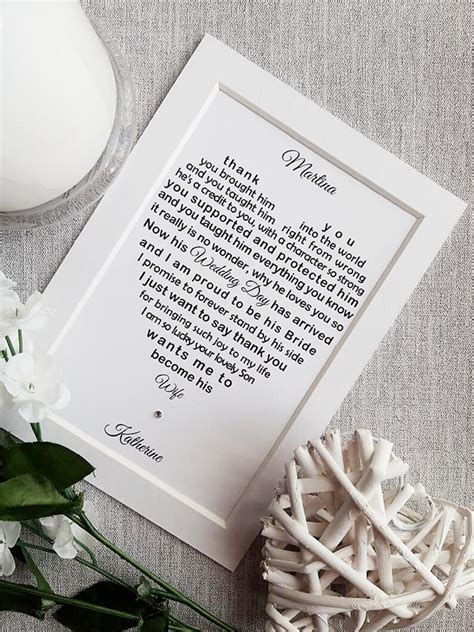 Martina
thank you
you brought him into the world
and you taught him right from wrong
he's a credit to you, with a character so strong
you supported and protected him
and you taught him everything you know
it really is no wonder, why he loves you so
Now his Wedding Day has arrived
and I am proud to be his Bride
I promise to forever stand by his side
I just want to say thank you
for bringing such joy to my life
I am so lucky your lovely Son
wants me to
become his
Wife
Katherine